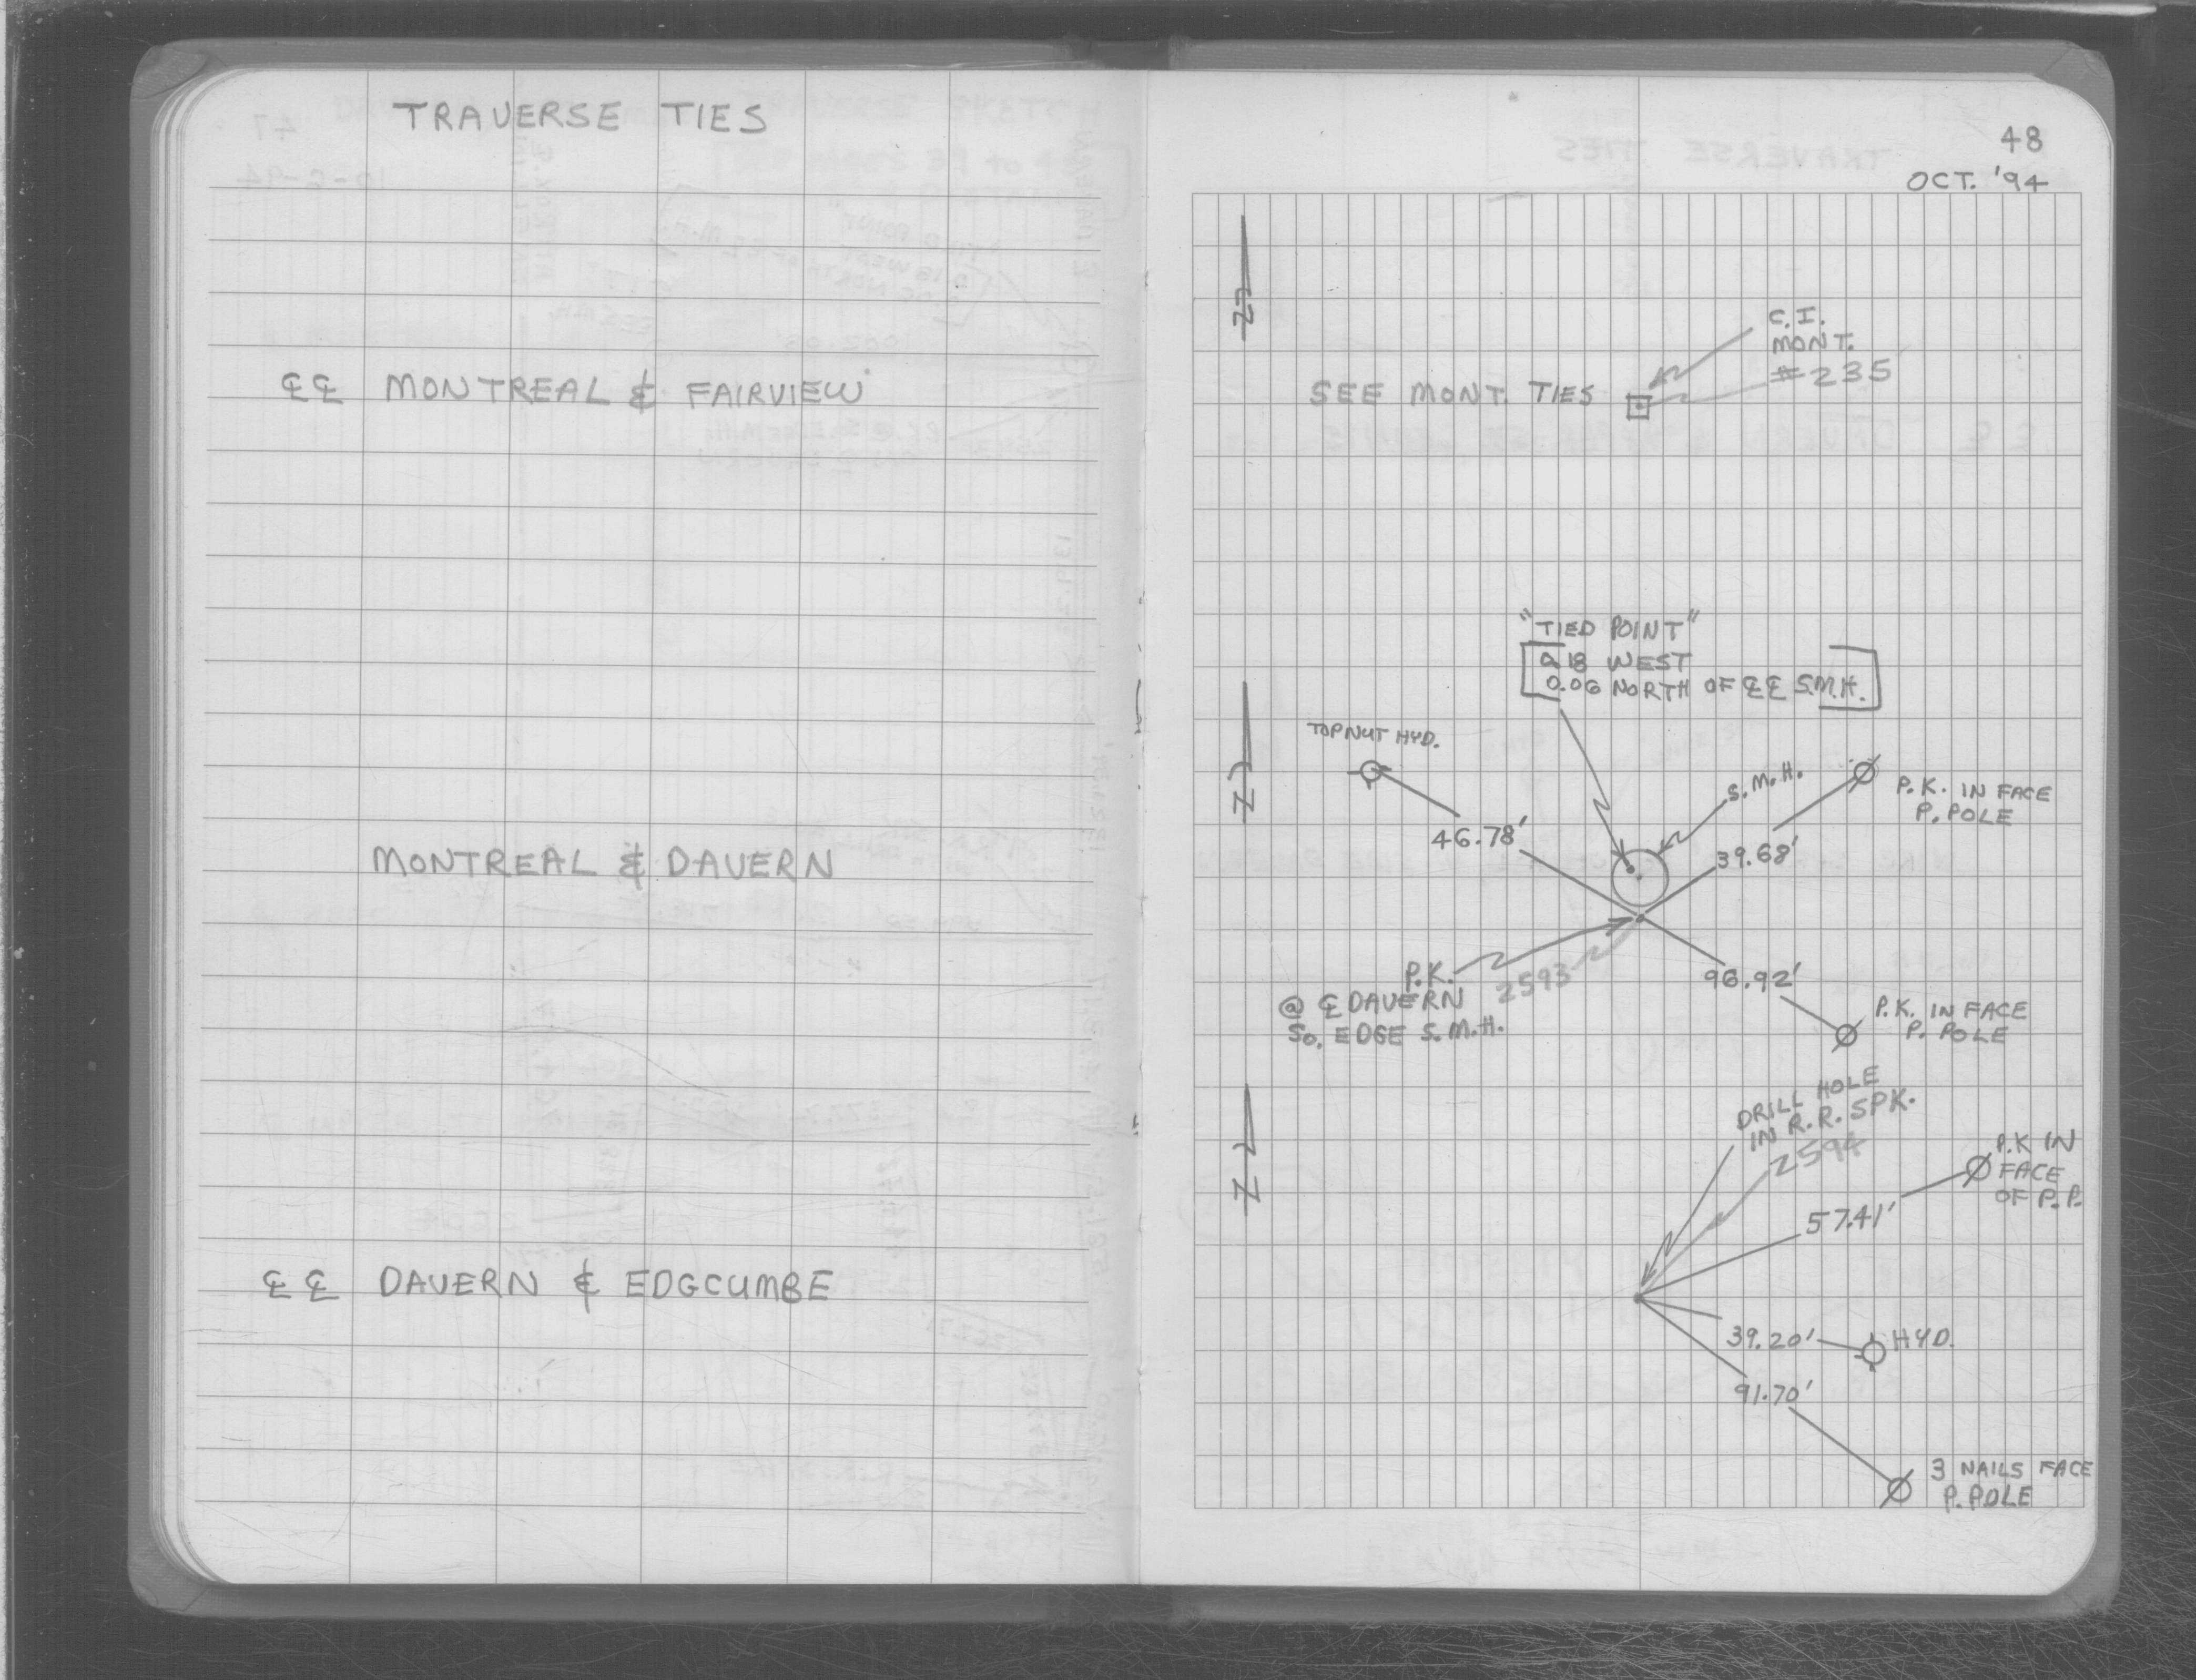 TRAVERSE TIES
℄ ℄ MONTREAL & FAIRVIEW
MONTREAL & DAVERN
℄ ℄ DAVERN & EDGCUMBE
48
OCT. '94
N
C.I.
MONT.
#235
SEE MONT. TIES
"TIED POINT"
0.18 WEST
0.06 NORTH OF ℄ ℄ S.M.H.
N
TOP NUT HYD.
S.M.H.
P.K. IN FACE
P. POLE
46.78'
39.68'
P.K.
@ ℄ DAVERN
SO. EDGE S.M.H.
2593
96.92'
P.K. IN FACE
P. POLE
N
DRILL HOLE
IN R.R. SPK.
2594
P.K IN
FACE
OF P.P.
57.41'
39.20'
HYD.
91.70'
3 NAILS FACE
P. POLE